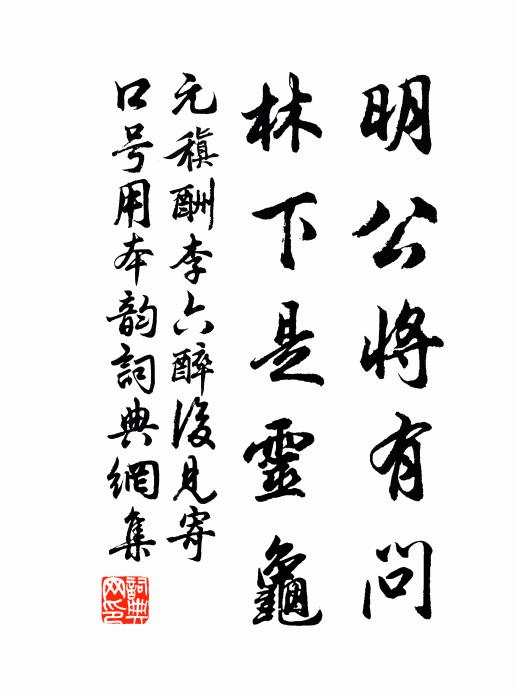 明公將有問
林下是靈龜
元稹酬李六醉後見寄
口号用本韵詞典網集
詞典
网印